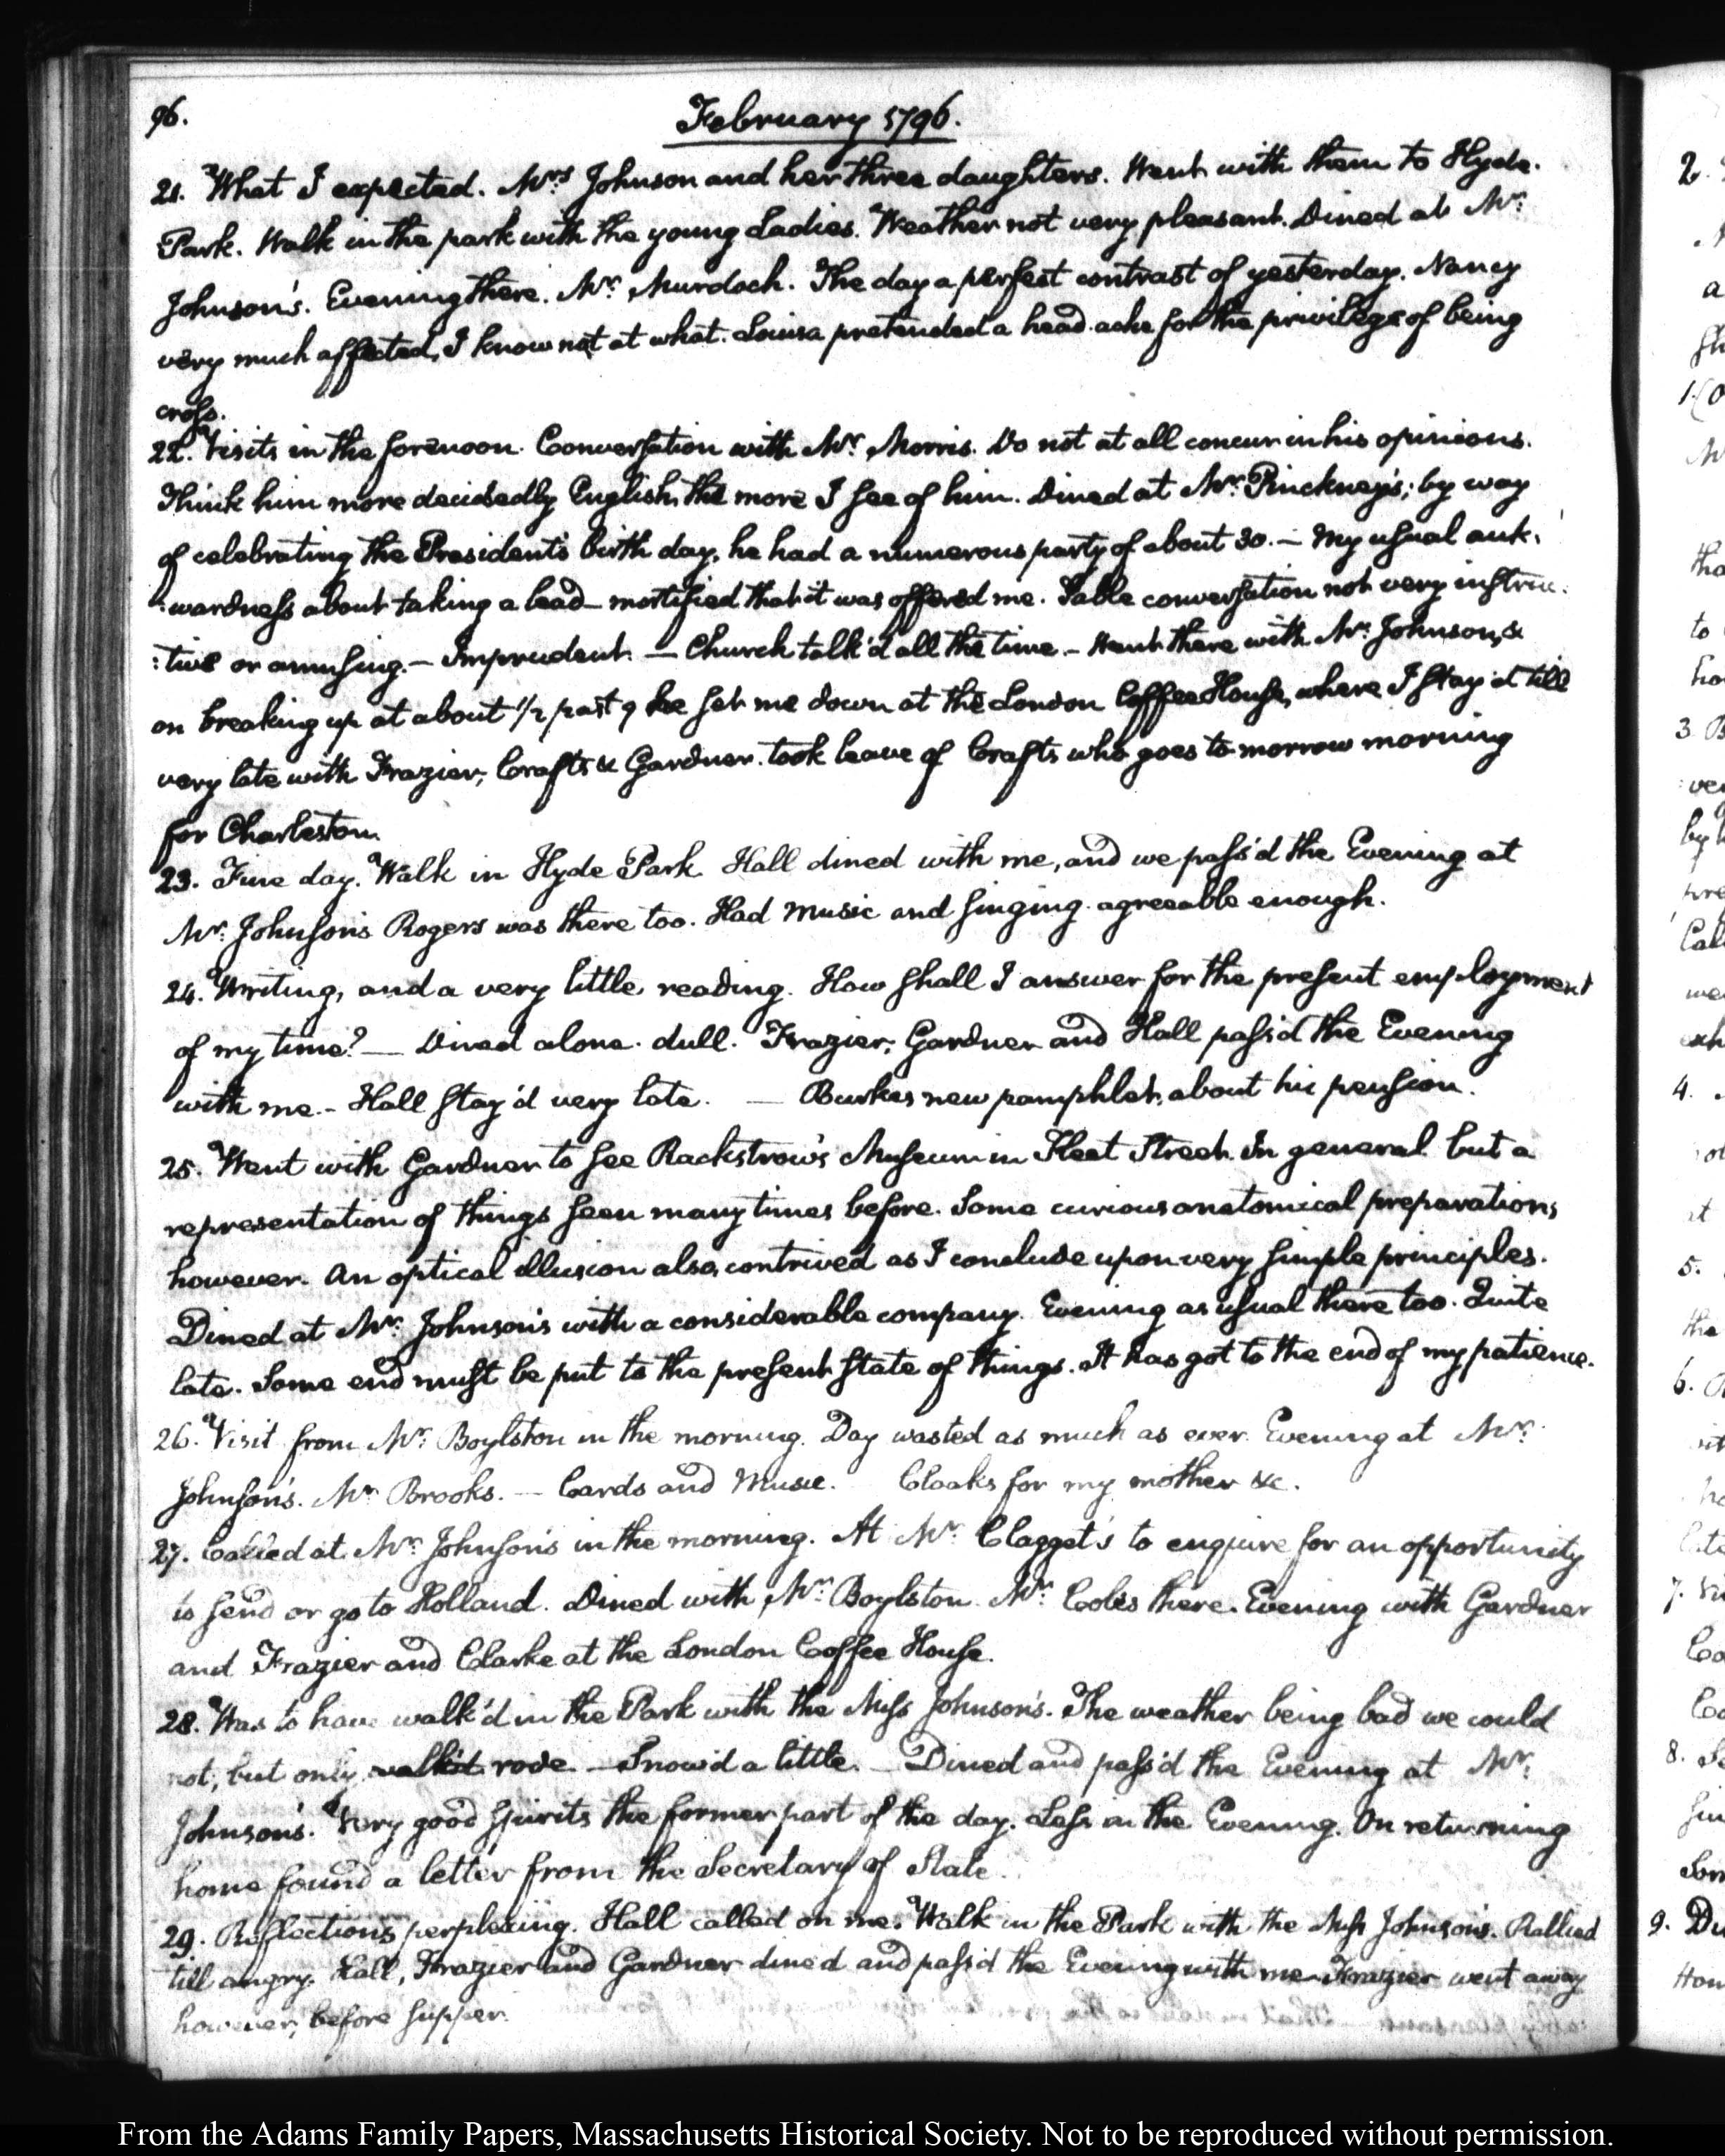 96.
February 1796.
21. What I expected. Mrs Johnson and her three daughters. Went with them to Hyde.
Park. Walk in the park with the young Ladies. Weather not very pleasant. Dined at Mr:
Johnson's. Evening there. Mr: Murdoch. The day a perfect contrast of yesterday. Nancy
very much affected, I know not at what. Louisa pretended a head-ache for the privilege of being
cross.
22. Visits in the forenoon. Conversation with Mr: Morris. Do not at all concur in his opinions.
Think him more decidedly English, the more I see of him. Dined at Mr: Pinckney's; by way
of celebrating the President's birth day, he had a numerous party of about 30. — My usual auk:
:wardness about taking a lead — mortified that it was offered me. Table conversation not very instruc:
:tive or amusing. — Imprudent. — Church talk'd all the time — Went there with Mr: Johnson, &
on breaking up at about 1/2 past 9 he set me down at the London Coffee House, where I stay'd till
very late with Frazier, Crafts & Gardner. took leave of Crafts who goes to morrow morning
for Charleston.
23. Fine day. Walk in Hyde Park. Hall dined with me, and we pass'd the Evening at
Mr: Johnson's Rogers was there too. Had music and singing. agreeable enough.
24. Writing, and a very little, reading. How shall I answer for the present employment
of my time? — Dined alone. dull. Frazier, Gardner and Hall pass'd the Evening
with me. - Hall stay'd very late. — Burkes new pamphlet, about his pension.
25. Went with Gardner to see Rackstrow's Museum in Fleet Street. In general but a
representation of things seen many times before. Some curious anatomical preparations
however. An optical illusion also, contrived as I conclude upon very simple principles.
Dined at Mr: Johnson's with a considerable company. Evening as usual there too. Quite
late. Some end must be put to the present state of things. It has got to the end of my patience.
26. Visit from Mr: Boylston in the morning. Day wasted as much as ever. Evening at Mr:
Johnson's. Mr Brooks. — Cards and Music. Cloaks for my mother &c.
27. Called at Mr: Johnson's in the morning. At Mr: Clagget's to enquire for an opportunity
to send or go to Holland. Dined with Mr: Boylston. Mr: Coles there. Evening with Gardner
and Frazier and Clarke at the London Coffee House.
28. Was to have walk'd in the Park with the Miss Johnson's. The weather being bad we could
not, but only walk'd rode. — Snow'd a little. — Dined and pass'd the Evening at Mr:
Johnson's. Very good spirits the former part of the day. Less in the Evening. On returning
home found a letter from the Secretary of State.
29. Reflections perplexing. Hall called on me. Walk in the Park with the Miss Johnson's. Rallied
till angry. Hall, Frazier and Gardner dined and pass'd the Evening with me. Frazier went away
however, before supper.
From the Adams Family Papers, Massachusetts Historical Society. Not to be reproduced without permission.